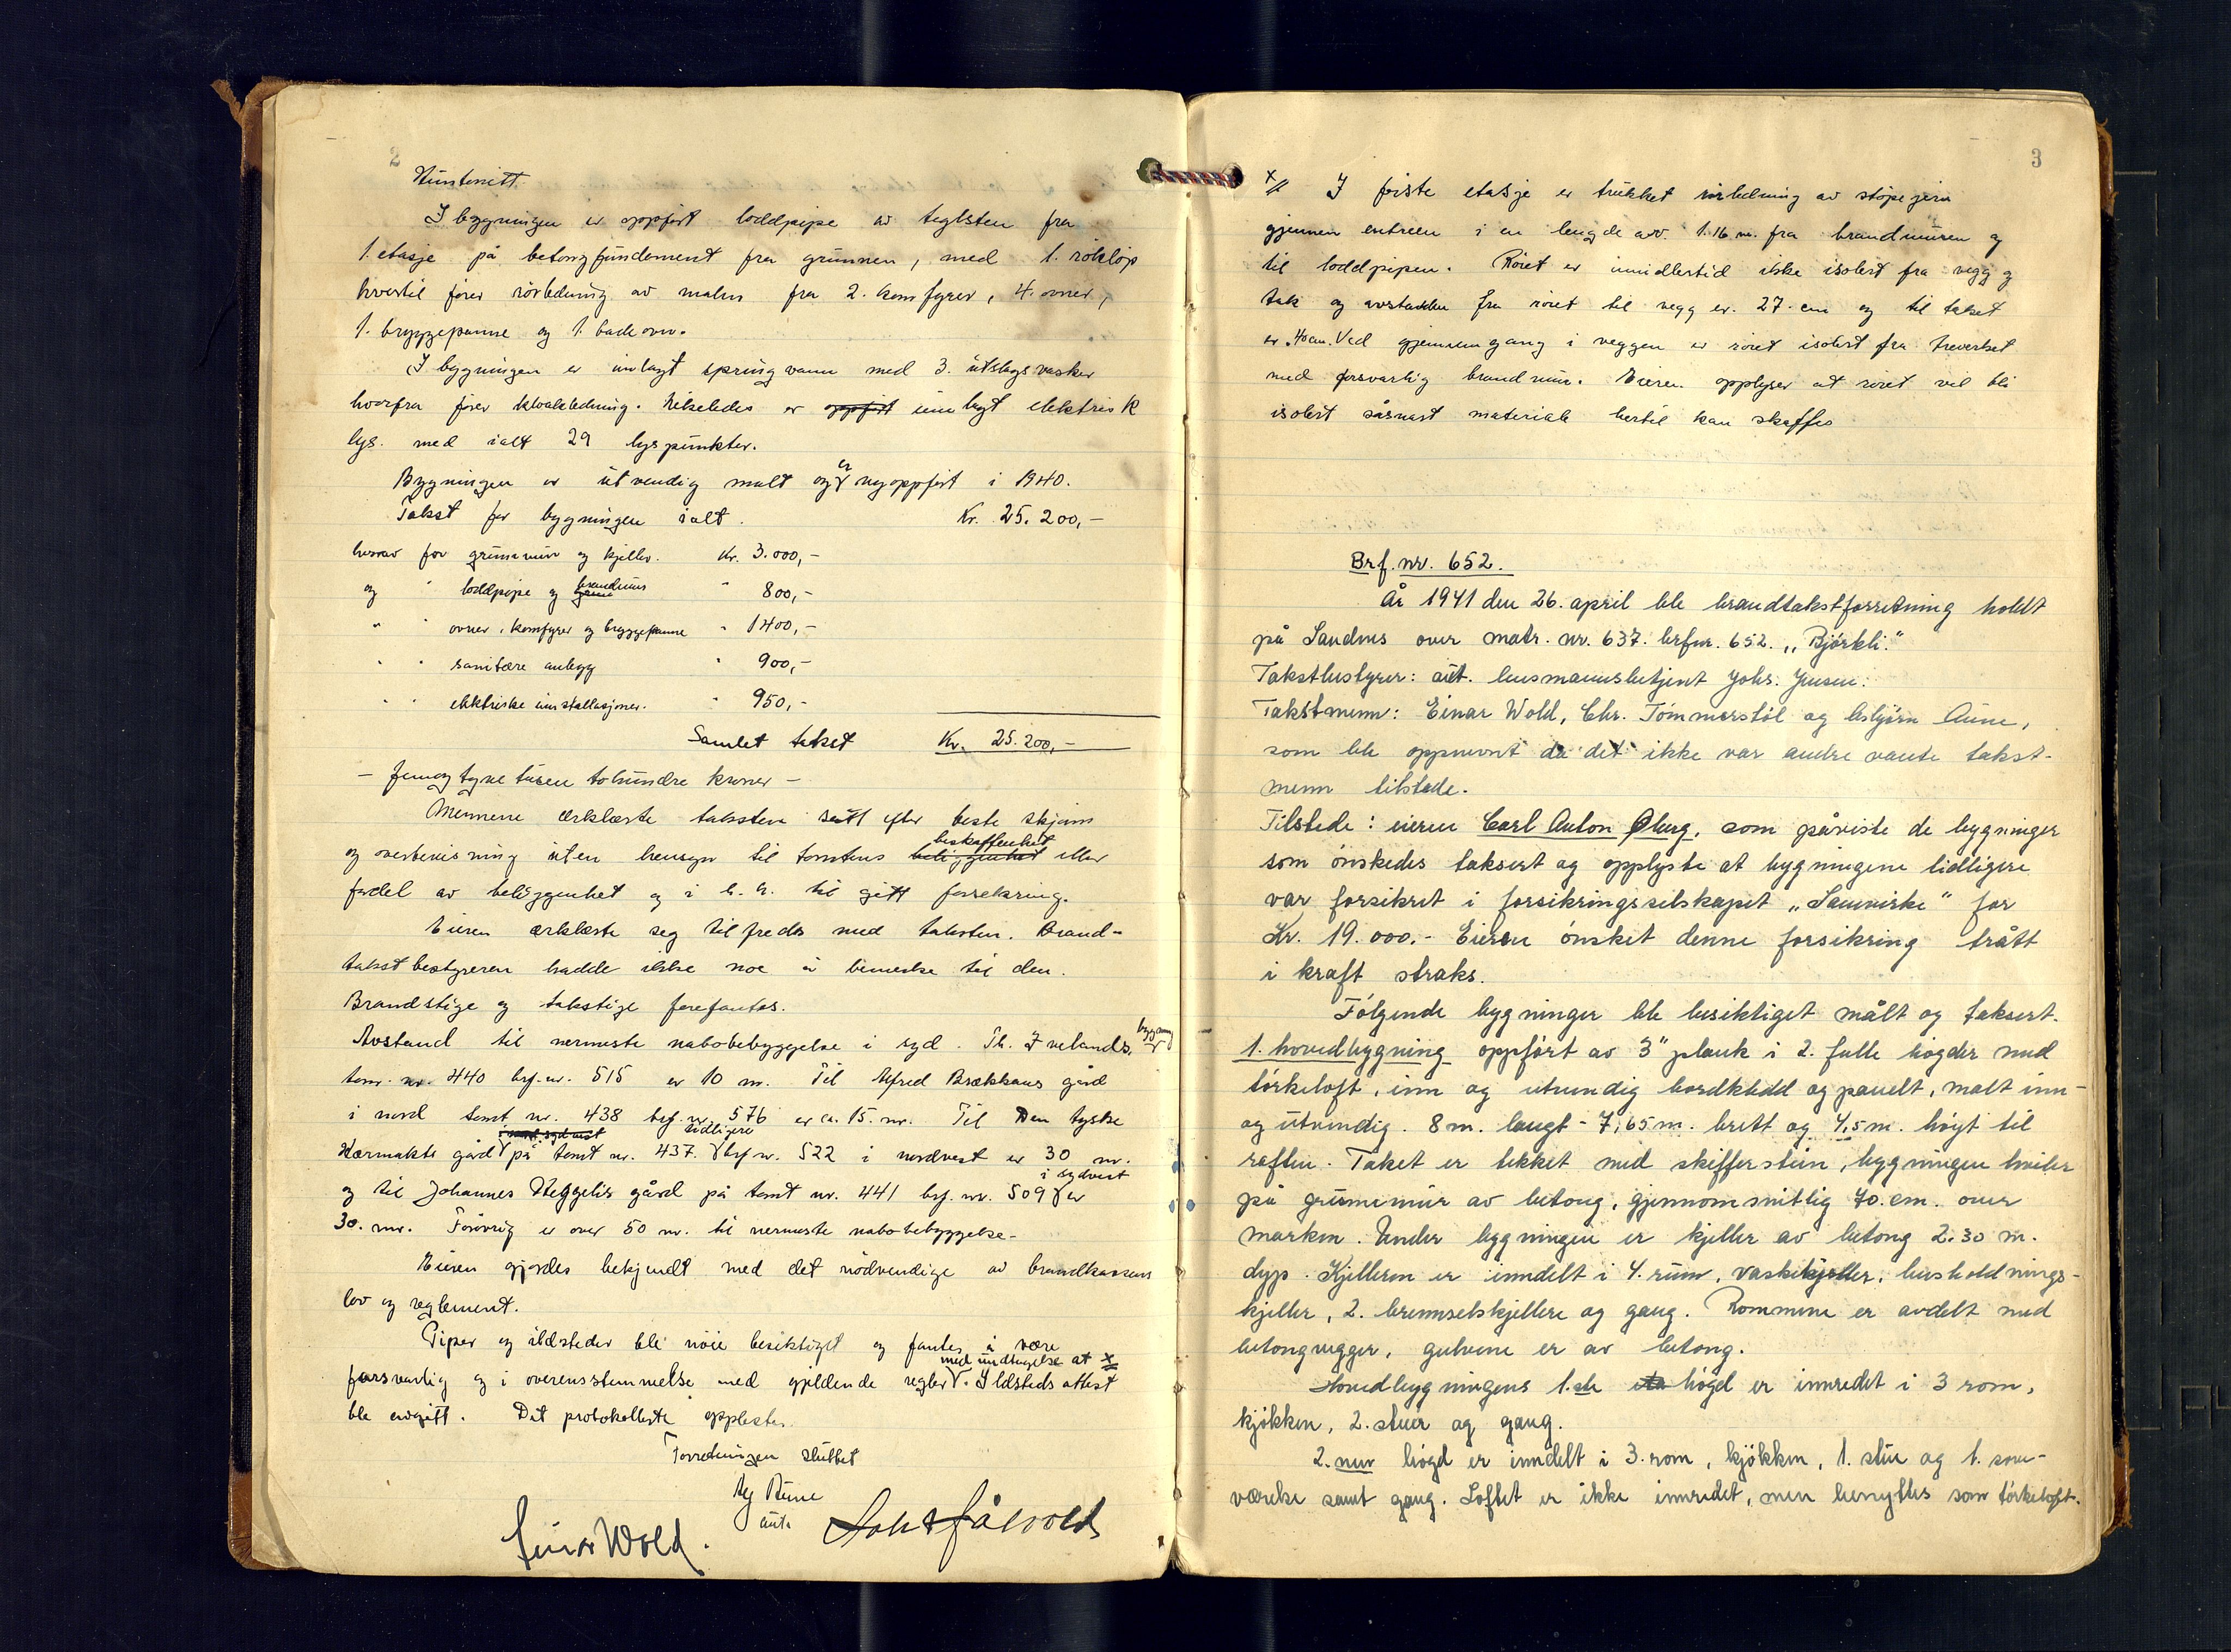 2
I bygningen er oppført loddpipe av teglsten fra
1. etasje på betongfundement fra grunnen, med 1. rökløp
hvortil fører rörledning av malm fra 2. komfyrer, 4. ovner,
1. bryggepanne og 1. badeovn.
I bygningen er innlagt springvann med 3. utslagsvasker
hvorfra fører kloakledning. Likeledes er oppført innlagt elektrisk
lys. med ialt 29 lyspunkter.
Bygningen er utvendig malt og er nyoppført i 1940.
Takst for bygningen ialt. Kr. 25.200,-
herav for grunnmur og kjeller. Kr. 3.000,-
og " loddpipe og brandmur " 800,-
" " ovner, komfyrer og bryggepanne " 1400,-
" " sanitære anlegg " 900,-
" " elektriske installasjoner. " 950,-
Samlet takst Kr. 25.200,-
- femogtyvetusen tohundre kroner -
Mennene erklærte taksten satt efter beste skjønn
og overbevisning uten hensyn til tomtens beliggenhet beskaffenhet eller
fordel av beliggenhet og i h. h. til gitt forsikring.
Eieren erklærte seg tilfreds med taksten. Brand-
takstbestyreren hadde ikke noe å bemerke til den.
Brandstige og takstige forefantes.
Avstand til nermeste nabobebyggelse i syd. Th. Ivelands bygning
tomt. nr. 440 brf. nr. 515 er 10 m. Til Alfred Brækkans gård
i nord tomt nr. 438 brf. nr. 576 er ca. 15. m. Til Den tyske
Værmakts gård på tomt nr. 437. tidligere brf nr. 522 i nordvest er 30 m.
og til Johannes Heggelis gård på tomt nr. 441 brf. nr. 509 i sydvest er
30. m. Forøvrig er over 50 m. til nermeste nabobebyggelse.
Eieren gjordes bekjendt med det nödvendige av brandkassens
lov og reglement.
Piper og ildsteder ble nöie besiktiget og fantes å være
forsvarlig og i overensstemmelse med gjeldende regler med undtagelse at x. Ildsteds attest
ble avgitt. Det protokollerte opplestes.
Forretningen sluttet
Einar Wold.
3
x// I förste etasje er trukket rörledning av støpejern
gjennem entreen i en lengde av. 1.16 m. fra brandmuren og
til loddpipen. Röret er imidlertid ikke isolert fra vegg og
tak og avstanden fra röret til vegg er. 27. cm og til taket
er 40 cm. Ved gjennemgang i veggen er röret isolert fra treverket
med forsvarlig brandmur. Eieren opplyser at röret vil bli
isolert såsnart materiale hertil kan skaffes
Brf. nr. 652.
År 1941 den 26. april ble brandtakstforretning holdt
på Sandnes over matr. nr. 637. brfnr. 652. „Björkli."
Takstbestyrer: aut. lensmannsbetjent Johs. Jensen.
Takstmenn: Einar Wold, Chr. Tömmerstöl og Asbjørn Aune,
som ble oppnevnt da det ikke var andre vante takst-
menn tilstede.
Tilstede: eieren Carl Anton Øberg, som påviste de bygninger
som önskedes taksert og opplyste at bygningene tidligere
var forsikret i forsikringsselskapet „Samvirke" for
Kr. 19.000.- Eieren önsket denne forsikring trått
i kraft straks.
Fölgende bygninger ble besiktiget målt og taksert.
1. hovedbygning oppfört av 3" plank i 2. fulle högder med
törkeloft, inn og utvendig bordkledd og panelt, malt inn-
og utvendig. 8 m. langt - 7,65 m. brett og 4,5 m. höyt til
raften. Taket er tekket med skifferstein, bygningen hviler
på grunnmur av betong, gjennomsnitlig 70. cm. over
marken. Under bygningen er kjeller av betong 2.30 m.
dyp. Kjelleren er inndelt i 4. rum, vaskekjeller, husholdnings-
kjeller, 2. brennselskjellere og gang. Rommene er avdelt med
betongvegger, gulvene er av betong.
Hovedbygningens 1.ste eta högd er innredet i 3 rom,
kjökken, 2. stuer og gang.
2. nen högd er inndelt i 3. rom, kjökken, 1. stue og 1. sove-
værelse samt gang. Loftet er ikke innredet, men benyttes som törkeloft.